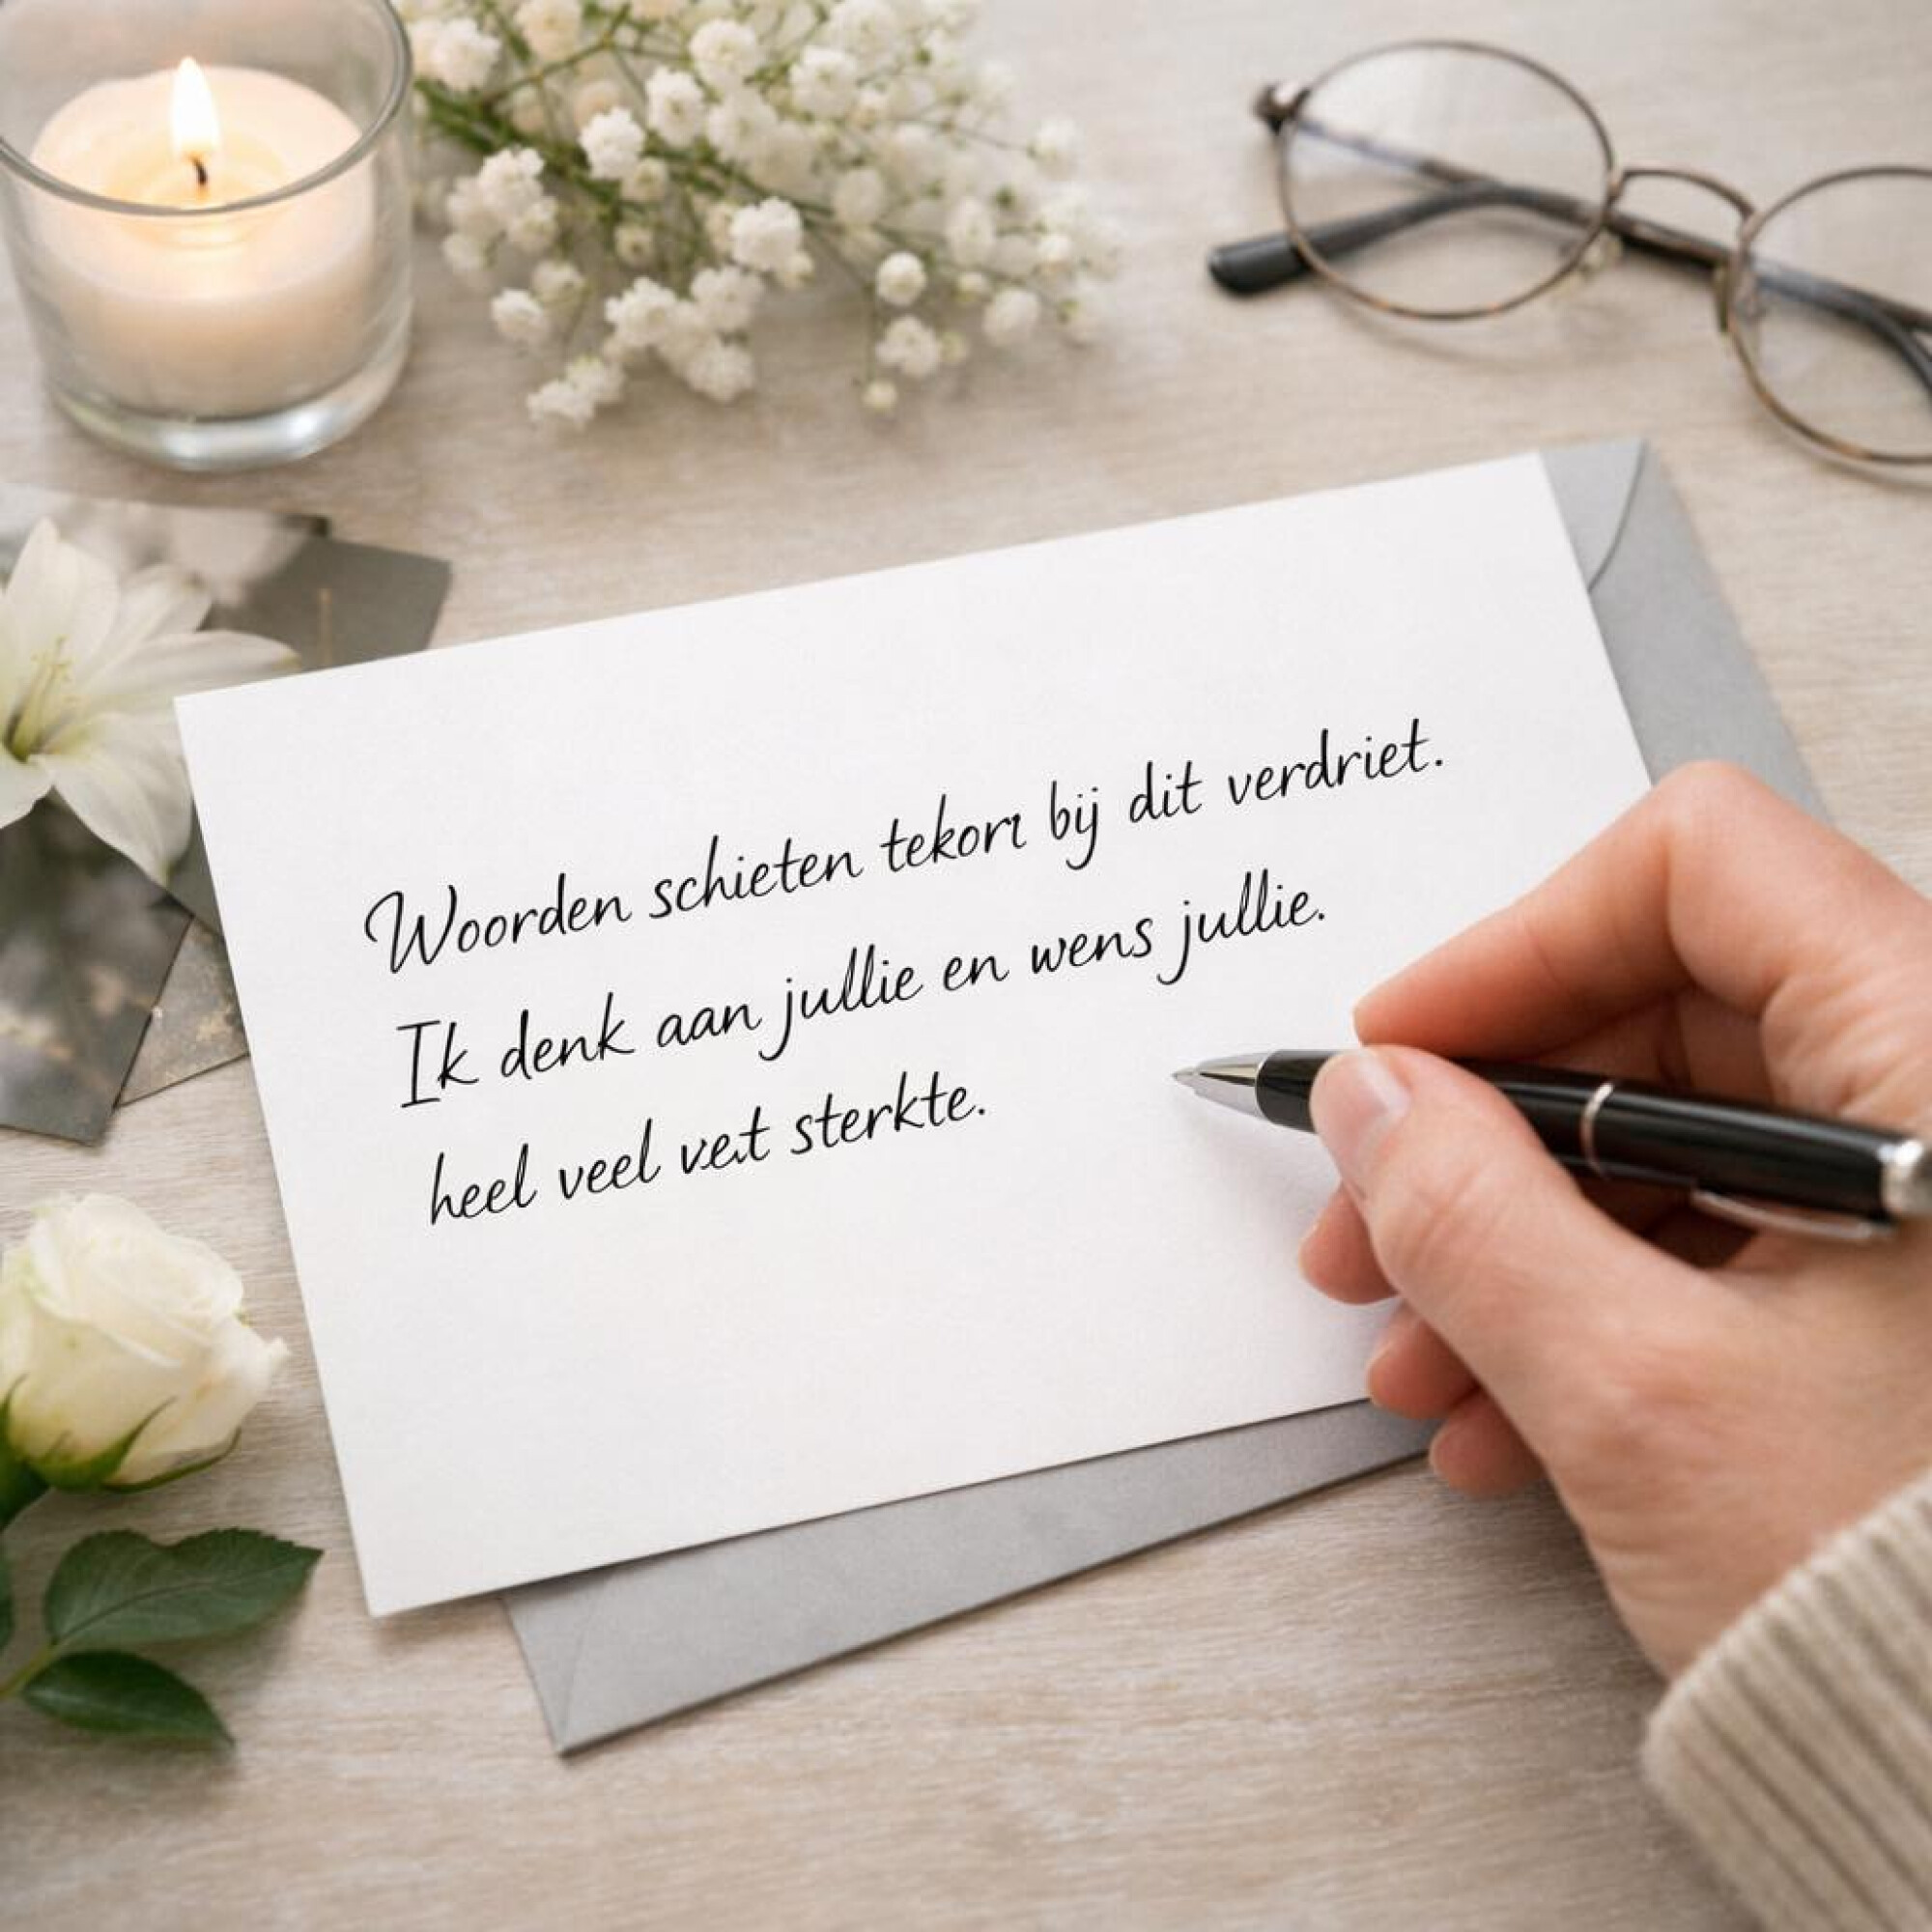 Woorden schieten tekort bij dit verdriet.
Ik denk aan jullie en wens jullie.
heel veel sterkte.